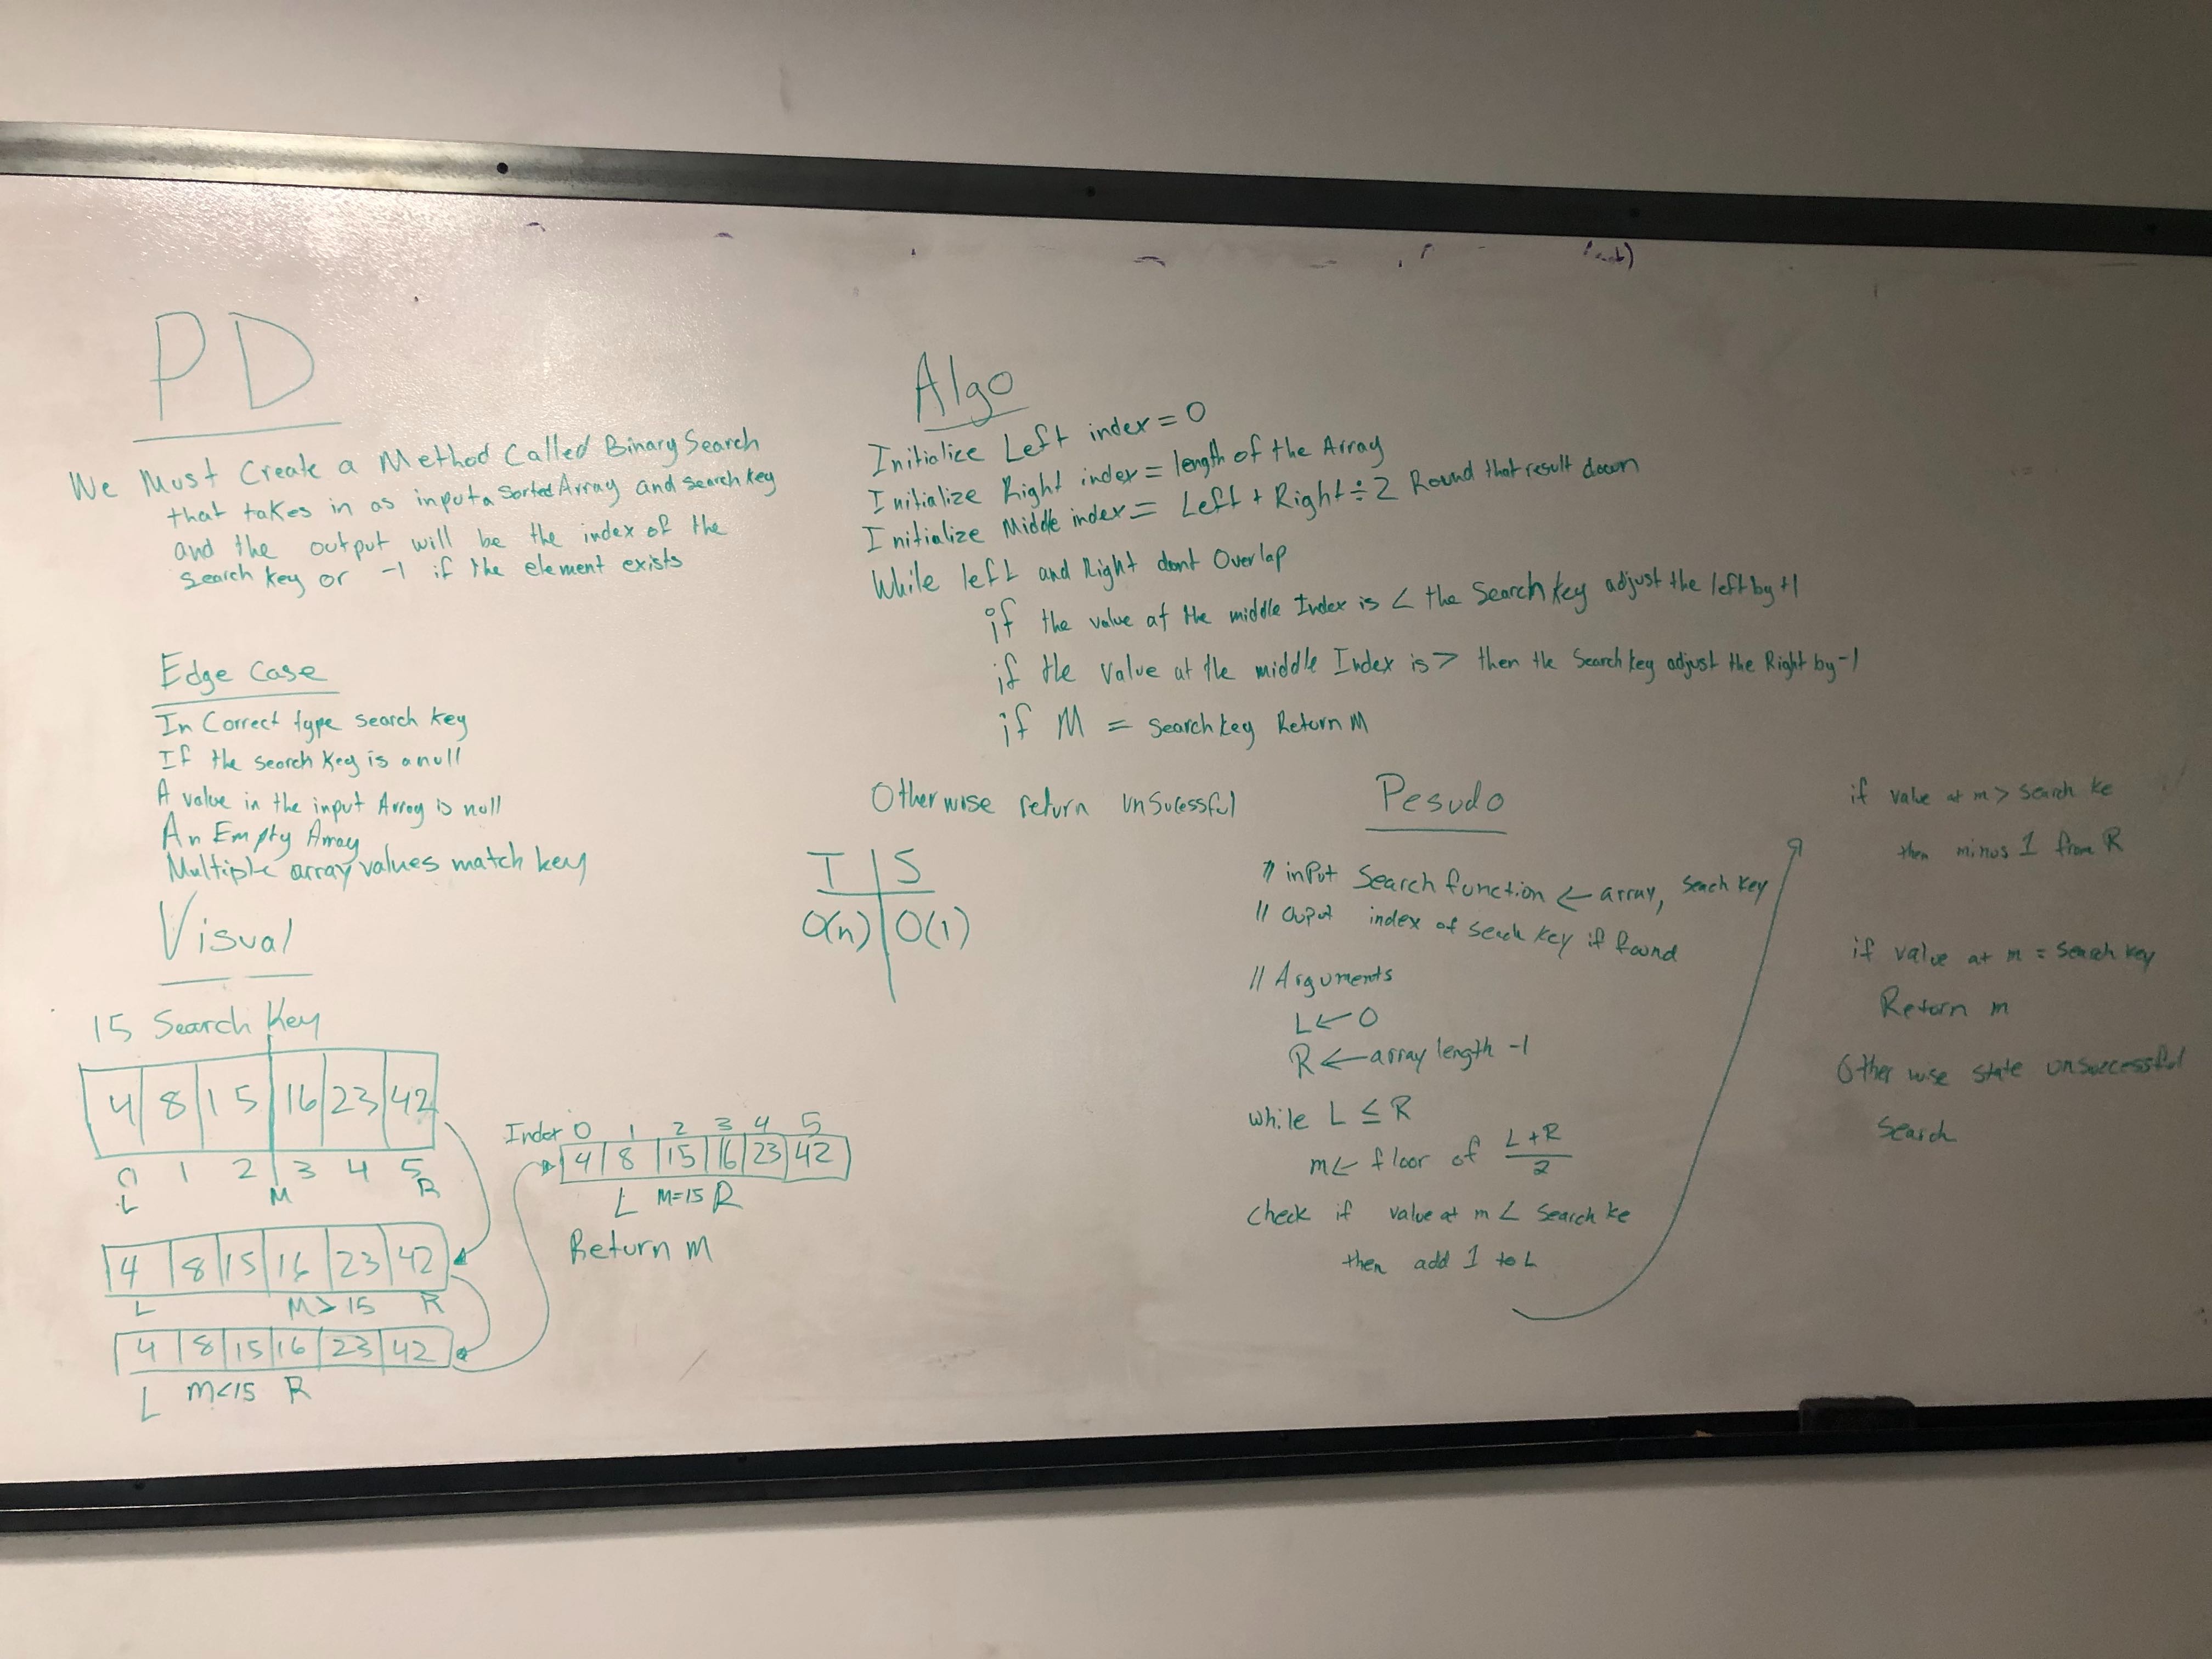 PD
We Must Create a Method Called Binary Search
that takes in as input a Sorted Array and search key
and the output will be the index of the
search key or -1 if the element exists
Edge Case
In Correct type search key
If the search key is a null
A value in the input Array is null
An Empty Array
Multiple array values match key
Visual
15 Search Key
4 8 15 16 23 42
0 1 2 3 4 5
L M R
4 8 15 16 23 42
L M > 15 R
4 8 15 16 23 42
L m<15 R
Index 0 1 2 3 4 5
4 8 15 16 23 42
L M=15 R
Return m
Algo
Initialize Left index = 0
Initialize Right index = length of the Array
Initialize Middle index = Left + Right ÷ 2 Round that result down
While left and Right dont Overlap
if the value at the middle Index is < the Search key adjust the left by +1
if the value at the middle Index is > then the Search key adjust the Right by -1
if M = searchkey Return M
Otherwise return unSucessful
T S
O(n) O(1)
Pesudo
// inPut Search function ← array, Seach key
// Ouput index of Seach key if found
// Arguments
L ← 0
R ← array length -1
while L ≤ R
m ← floor of L+R/2
check if value at m < Search ke
then add 1 to L
if value at m > Search ke
then minus 1 from R
if value at m = Search key
Return m
Other wise state unsuccessful
Search